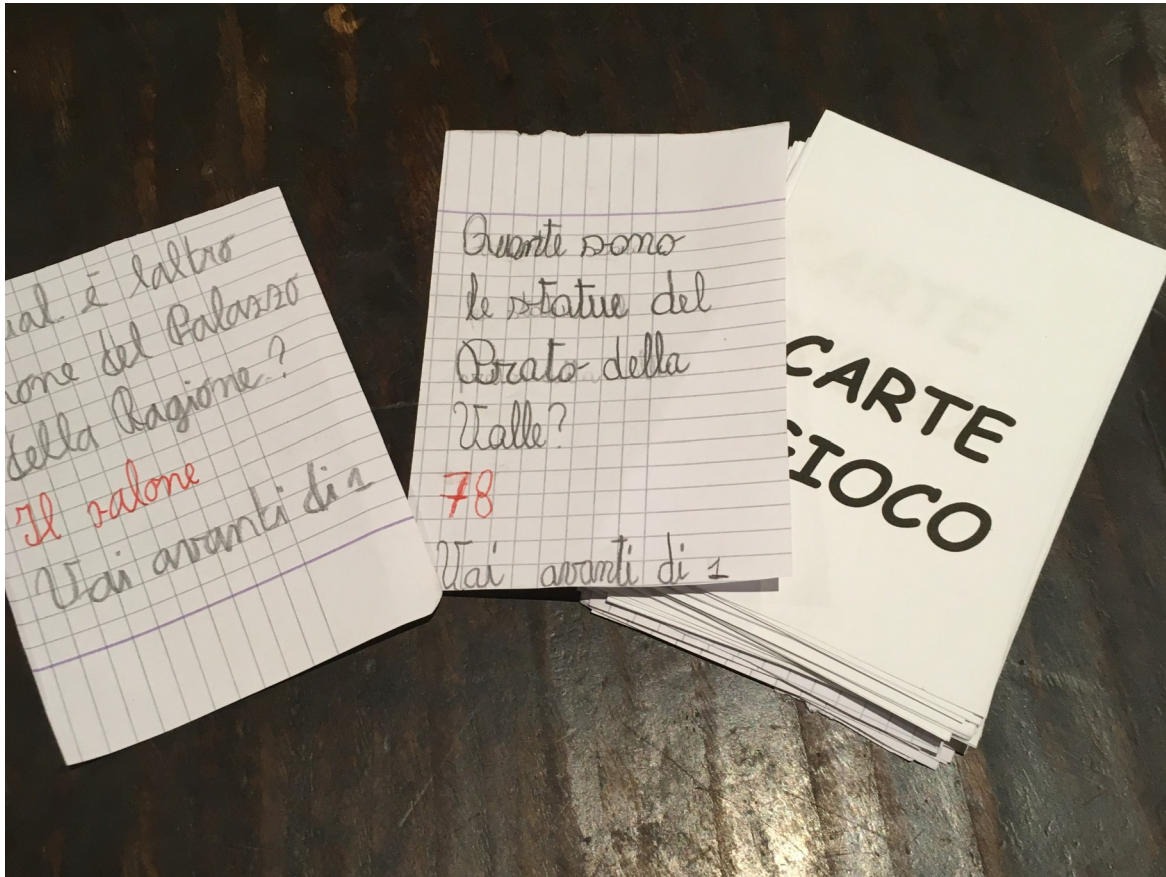 ual è laltro
ome del Palazzo
della Ragione?
Il salone
Vai avanti di 1
Quante sono
le statue del
Prato della
Valle?
78
Vai avanti di 1
CARTE
GIOCO